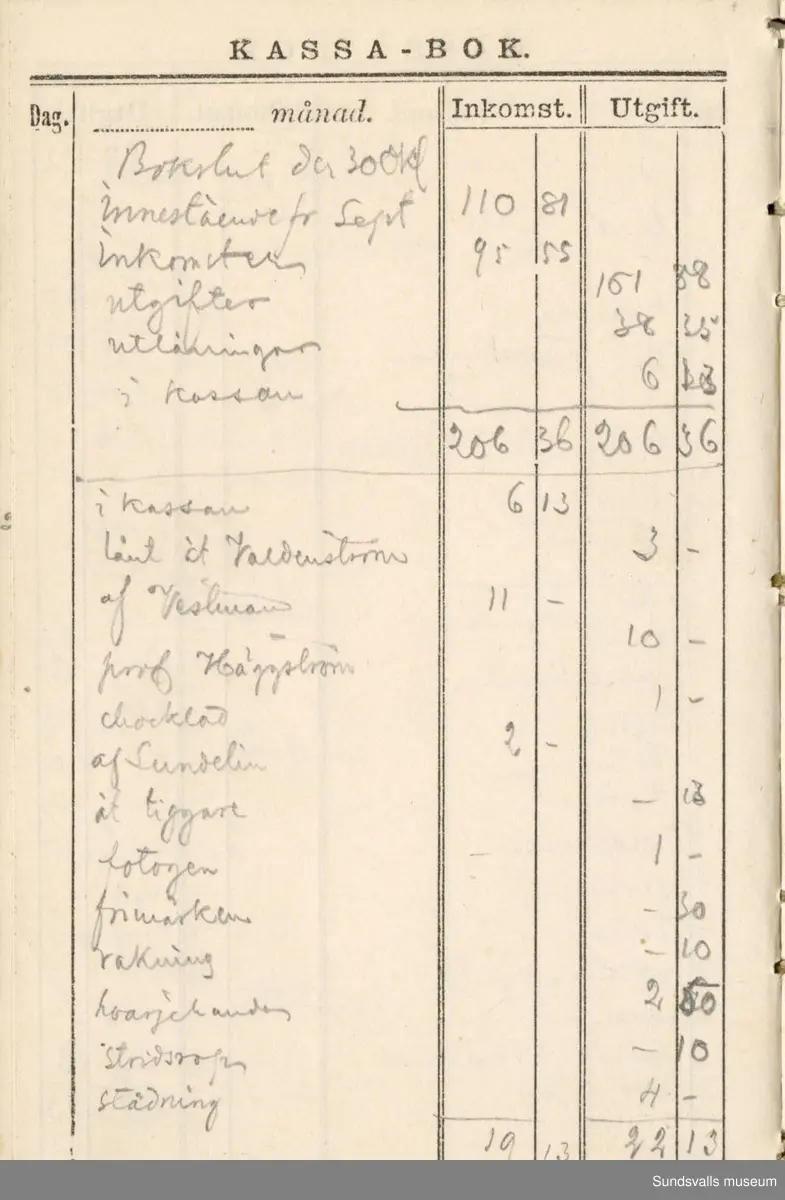 KASSA-BOK.
Dag. månad. Inkomst. Utgift.
Bokslut den 30 Okt
Innestående fr Sept 110 81
Inkomster 95 55
utgifter 161 88
utlåningar 38 35
i kassan 6 13
206 36 206 36
i kassan 6 13
lånt åt Valdenström 3 -
af Vestman 11 -
prof Häggström 10 -
chocklad 1 -
af Sundelin 2 -
åt tiggare - 13
fotogen 1 -
frimärken - 30
rakning - 10
hvarjehanda 2 50
stridsrop - 10
städning 4 -
19 13 22 13
Sundsvalls museum